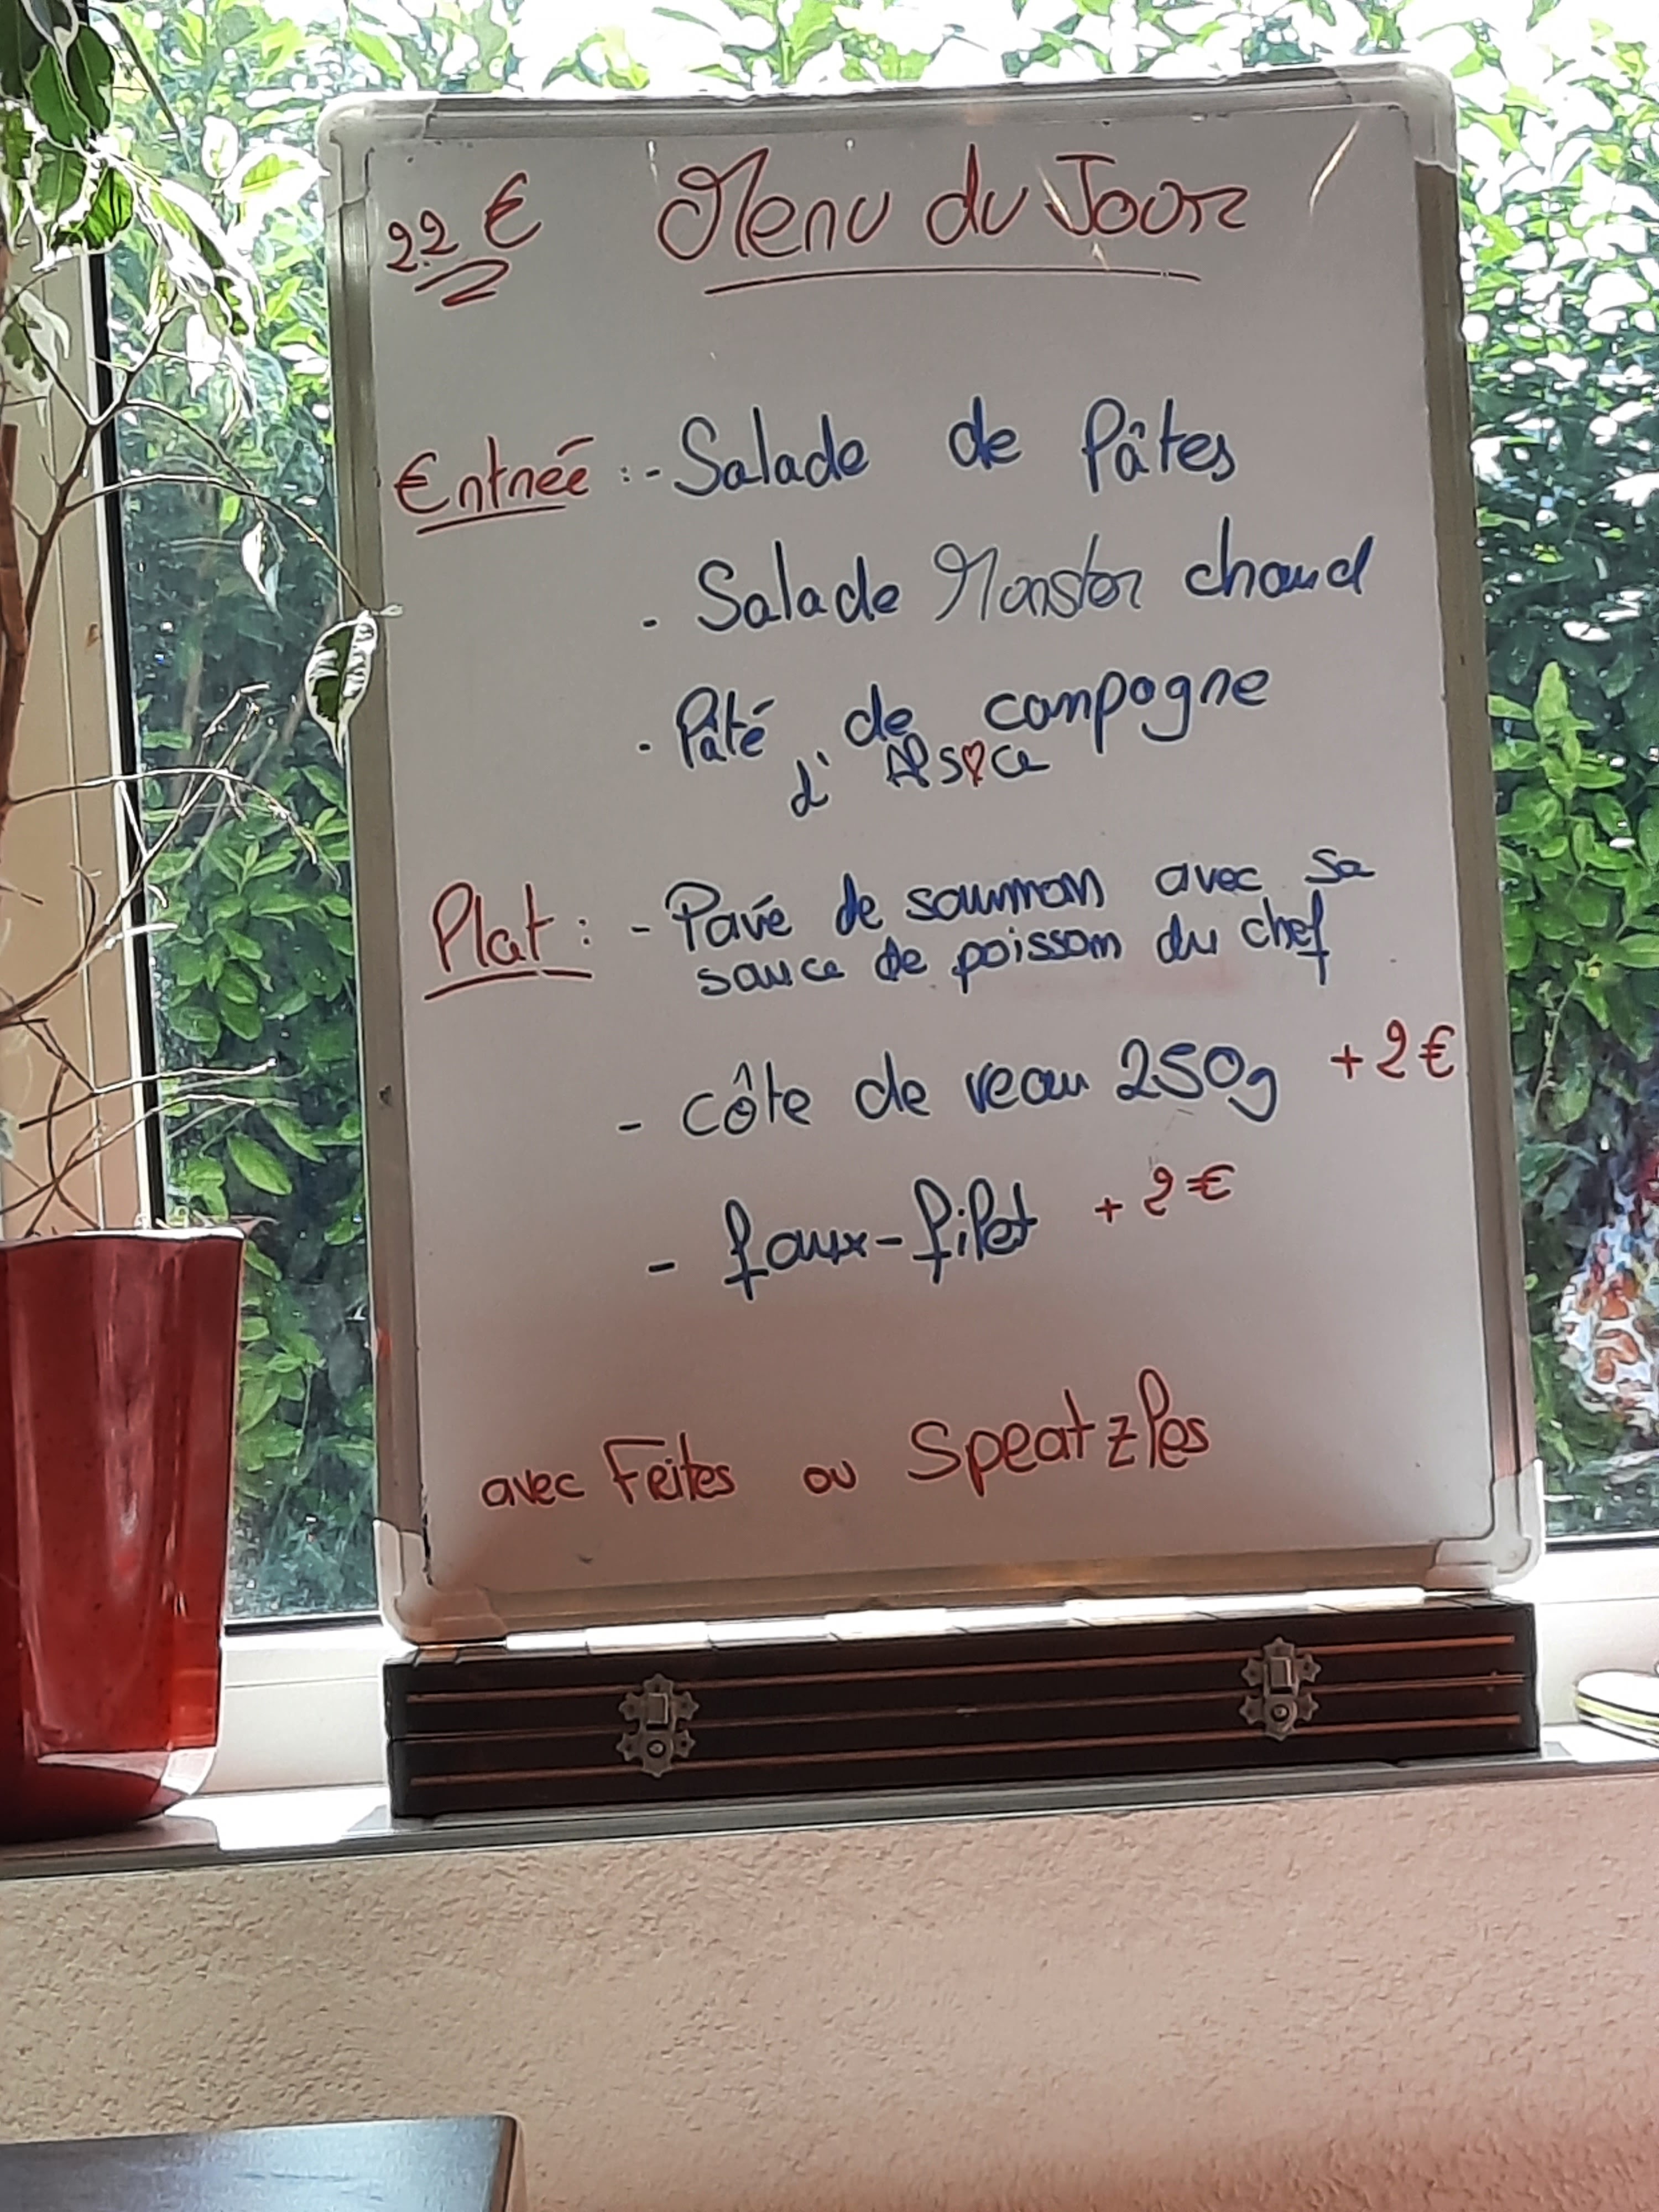 22 € Menu du Jour
Entrée : - Salade de Pâtes
- Salade Monster chaud
- Pâté de campagne
d'Alsace
Plat : - Pavé de saumon avec sa
sauce de poisson du chef
- côte de veau 250g +2€
- faux-filet +2€
avec Frites ou Speatzles